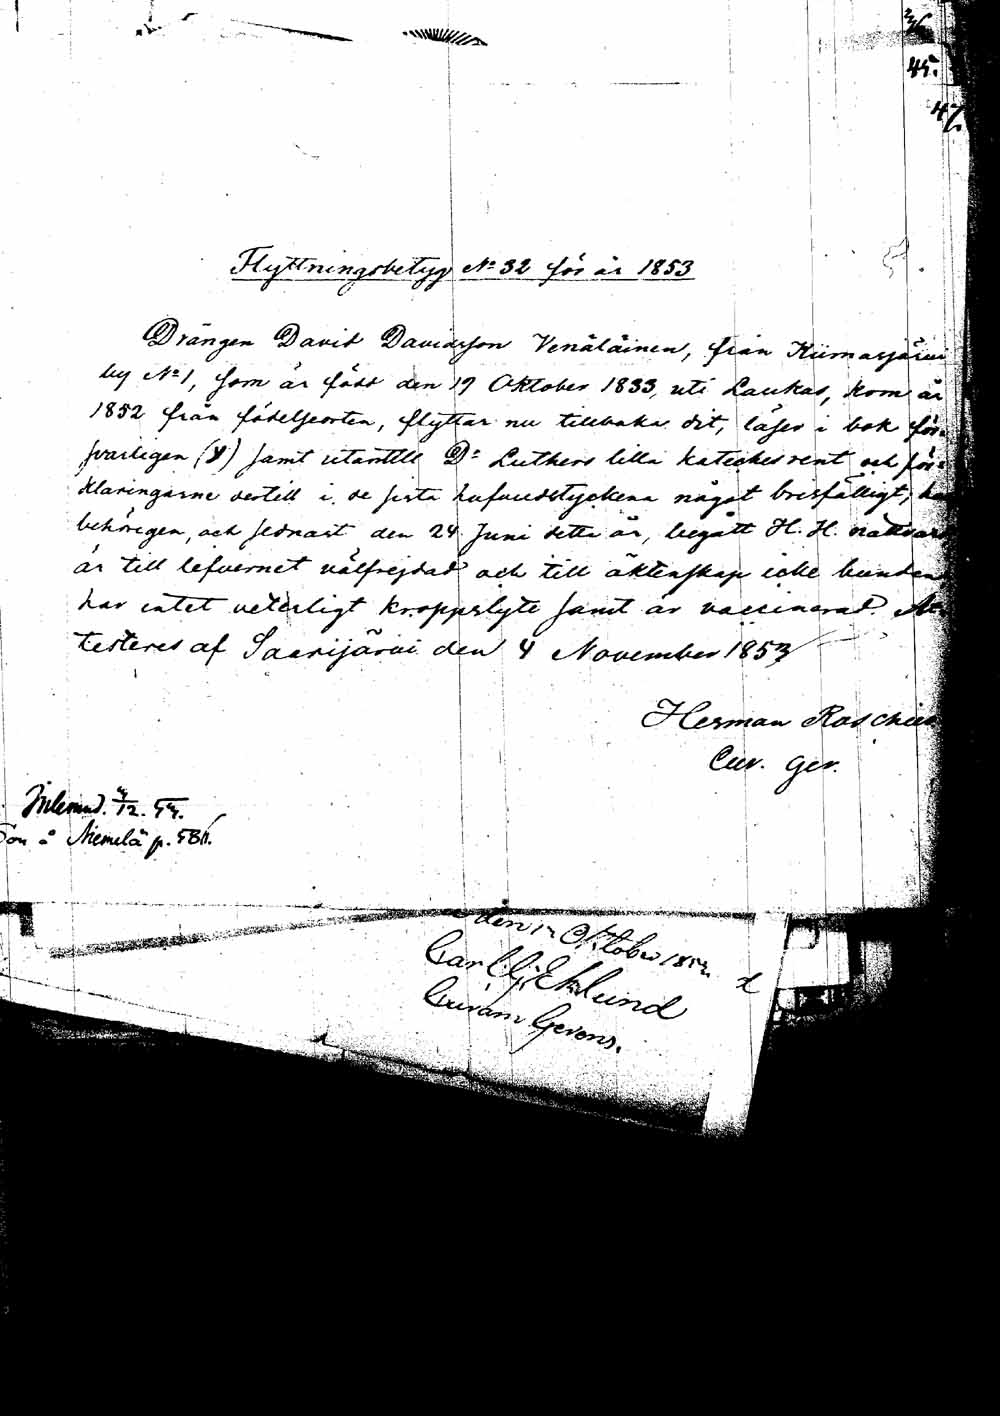 45.
47.
Flyttningsbetyg No 32 för år 1853
Drängen David Davidsson Venäläinen, från Kiimasjärvi
by No 1, som är född den 19 Oktober 1833, uti Laukas, kom år
1852 från födelseorten, flyttar nu tillbaka dit, läser i bok för-
svarligen samt utantill Dr Luthers lilla kateches rent och för-
klaringarne dertill i de sista hufvudstyckena något bristfälligt; har
behörigen, och sednast den 24 Juni detta år, begått H. H. nattvard
är till lefvernet välfrejdad och till äktenskap icke bunden
har intet veterligt kroppslyte samt är vaccinerad. At-
testeres af Saarijärvi den 4 November 1853
Herman Roschier
Cur. Ger.
Inlemnd.
Son å Niemelä p.
den 12 Oktober
Carl G. Eklund
Curam Gerens.